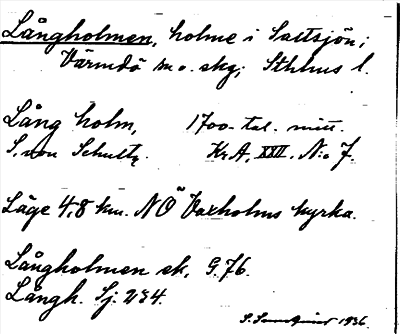 Långholmen, holme i Saltsjön;
Värmdö m. o. skg; Sthlms l.
Lång holm, 1700-tal. mitt.
S. von Schultz. Kr.A. XXII. N:o 7.
Läge 4,8 km. NÖ Vaxholms kyrka.
Långholmen ek. G. 76.
Långh. Sj. 234.
1936.